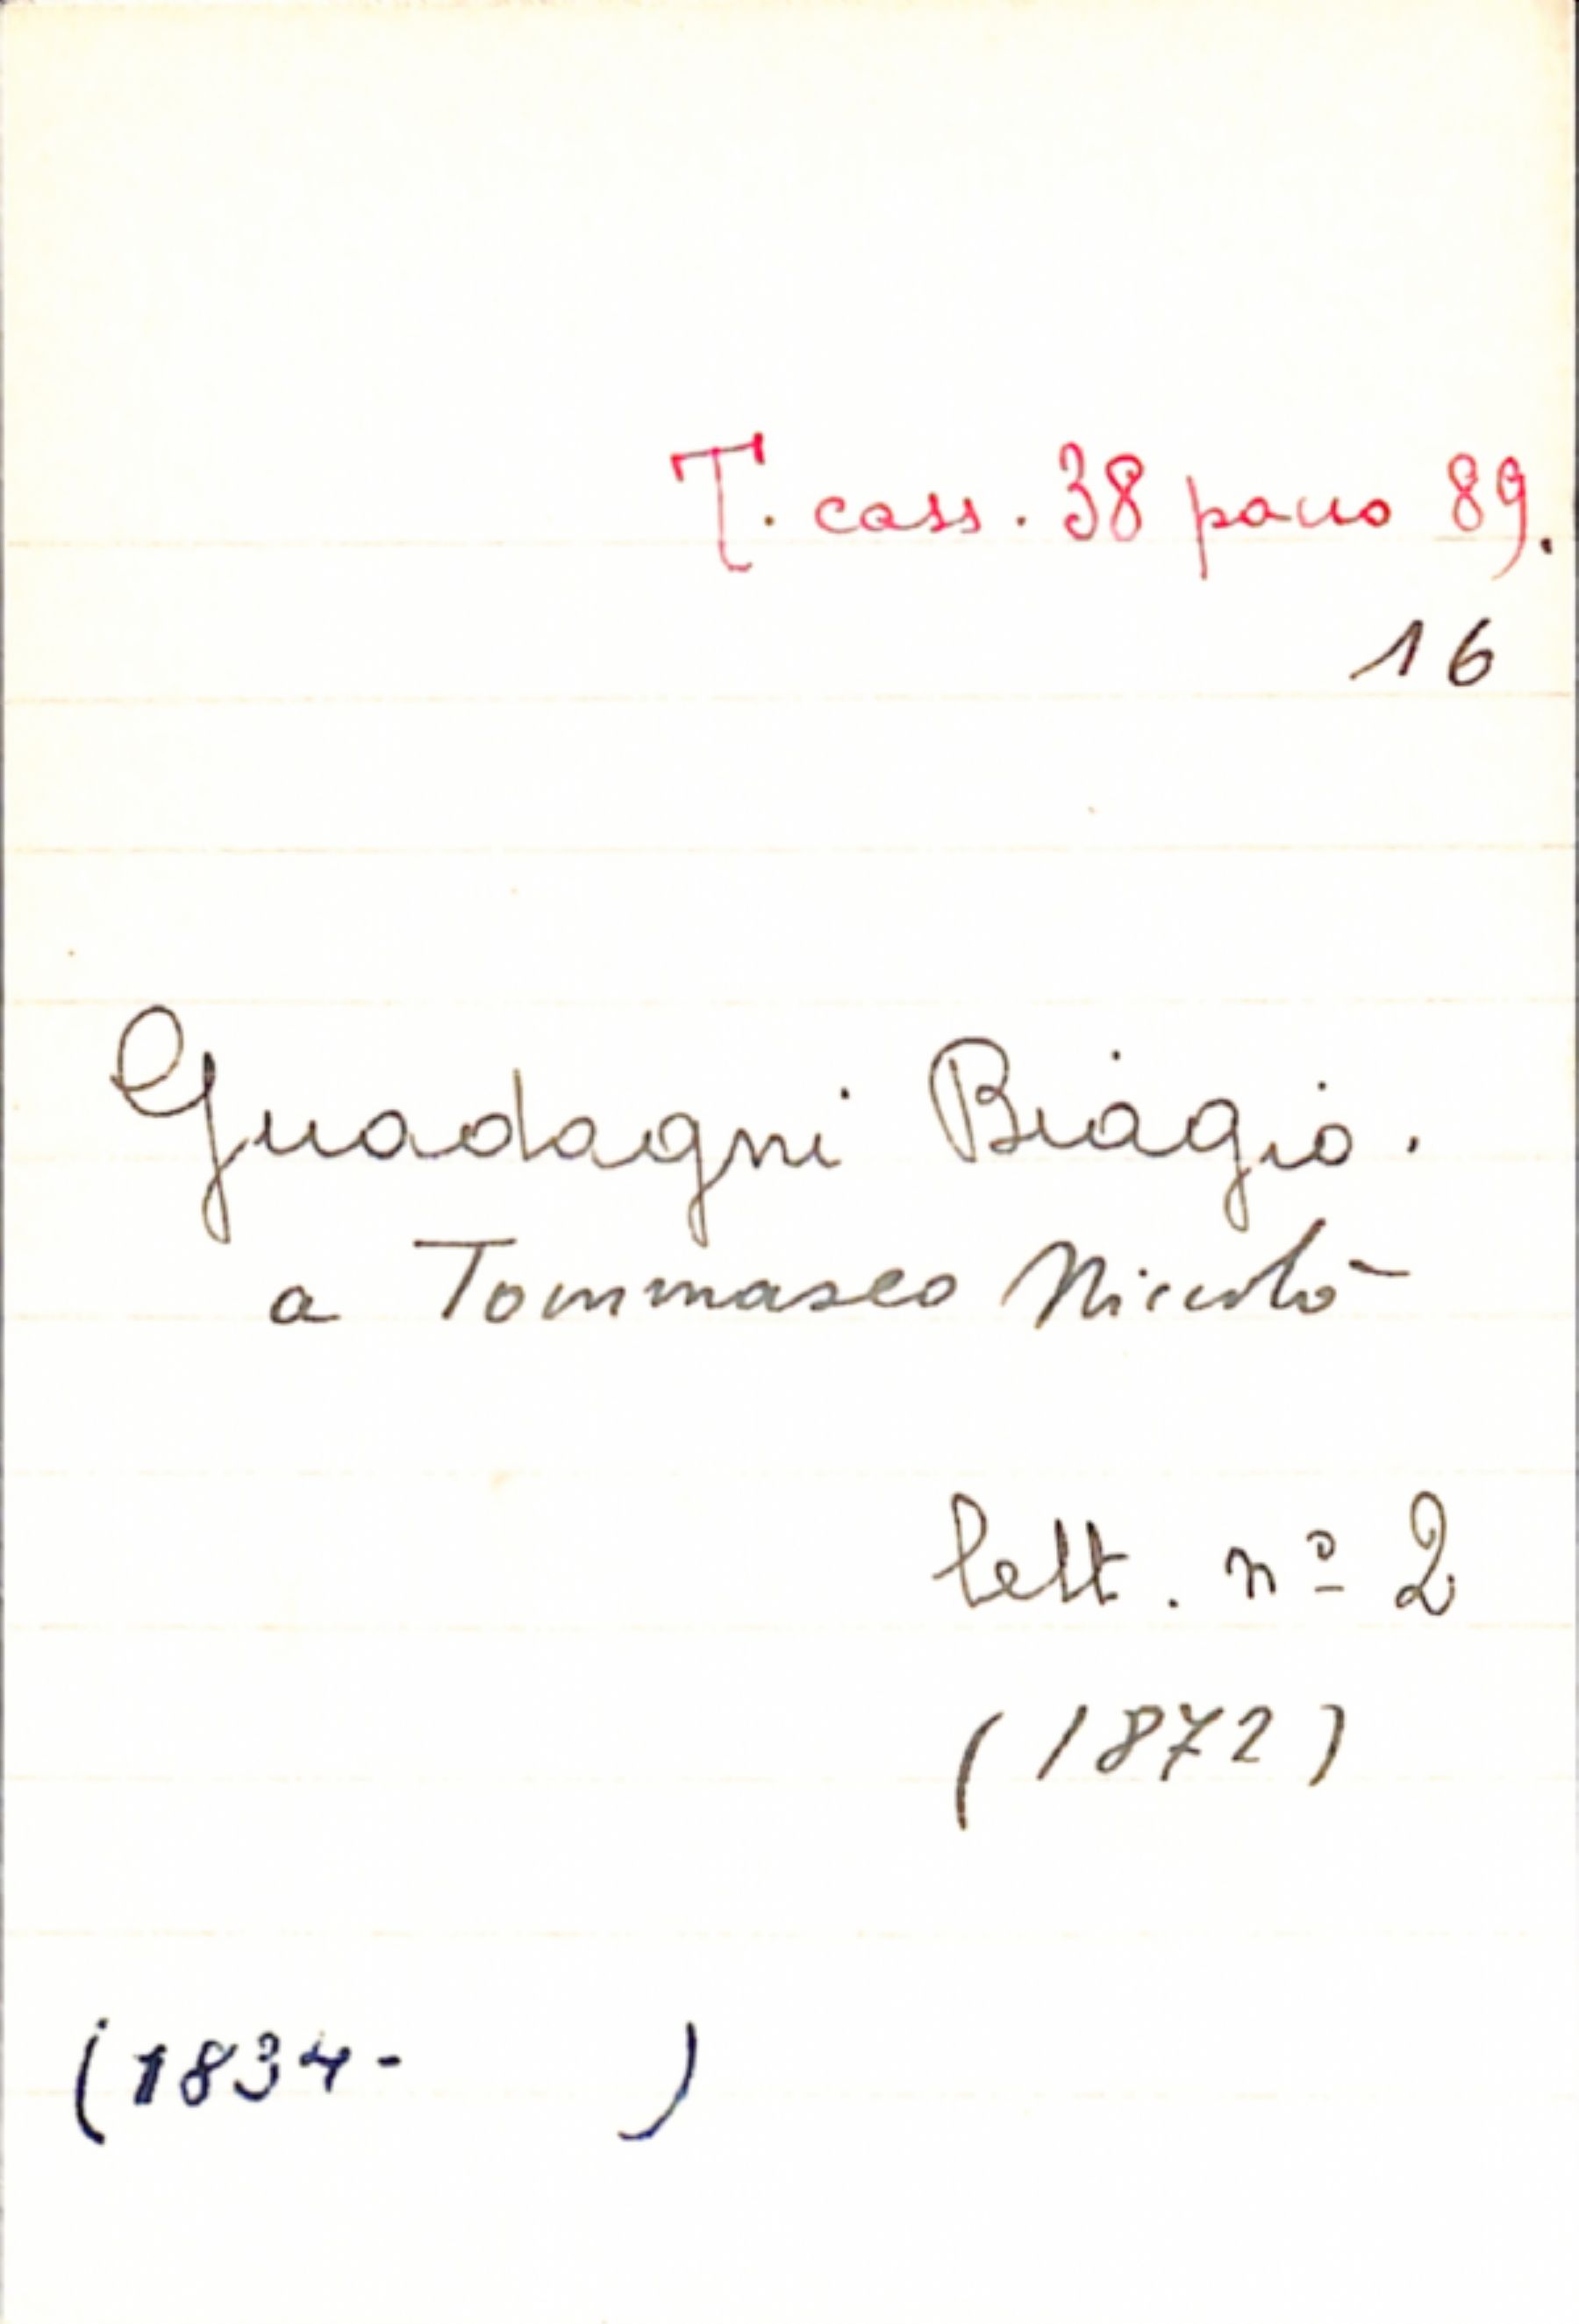 T. cass. 38 panno 89.
16
Guadagni Biagio.
a Tommaseo Niccolò
lett. nº 2
(1872)
(1834- )